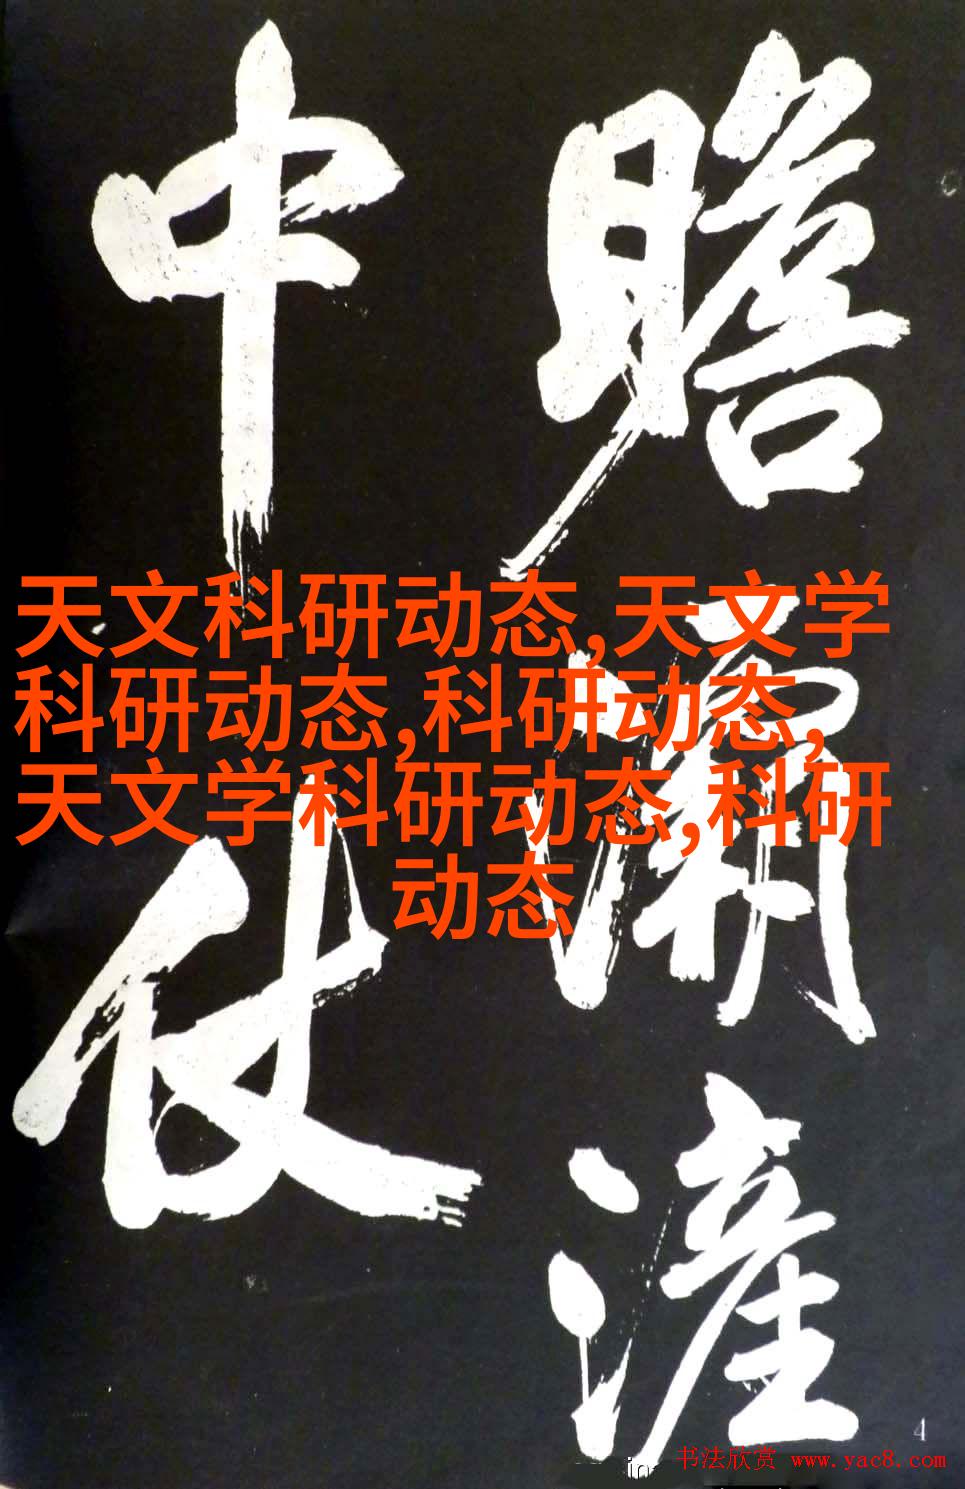 瞻灞滻
中仗
天文科研动态,天文学
科研动态,科研动态,
天文学科研动态,科研
动态
4
书法欣赏 www.yac8.com